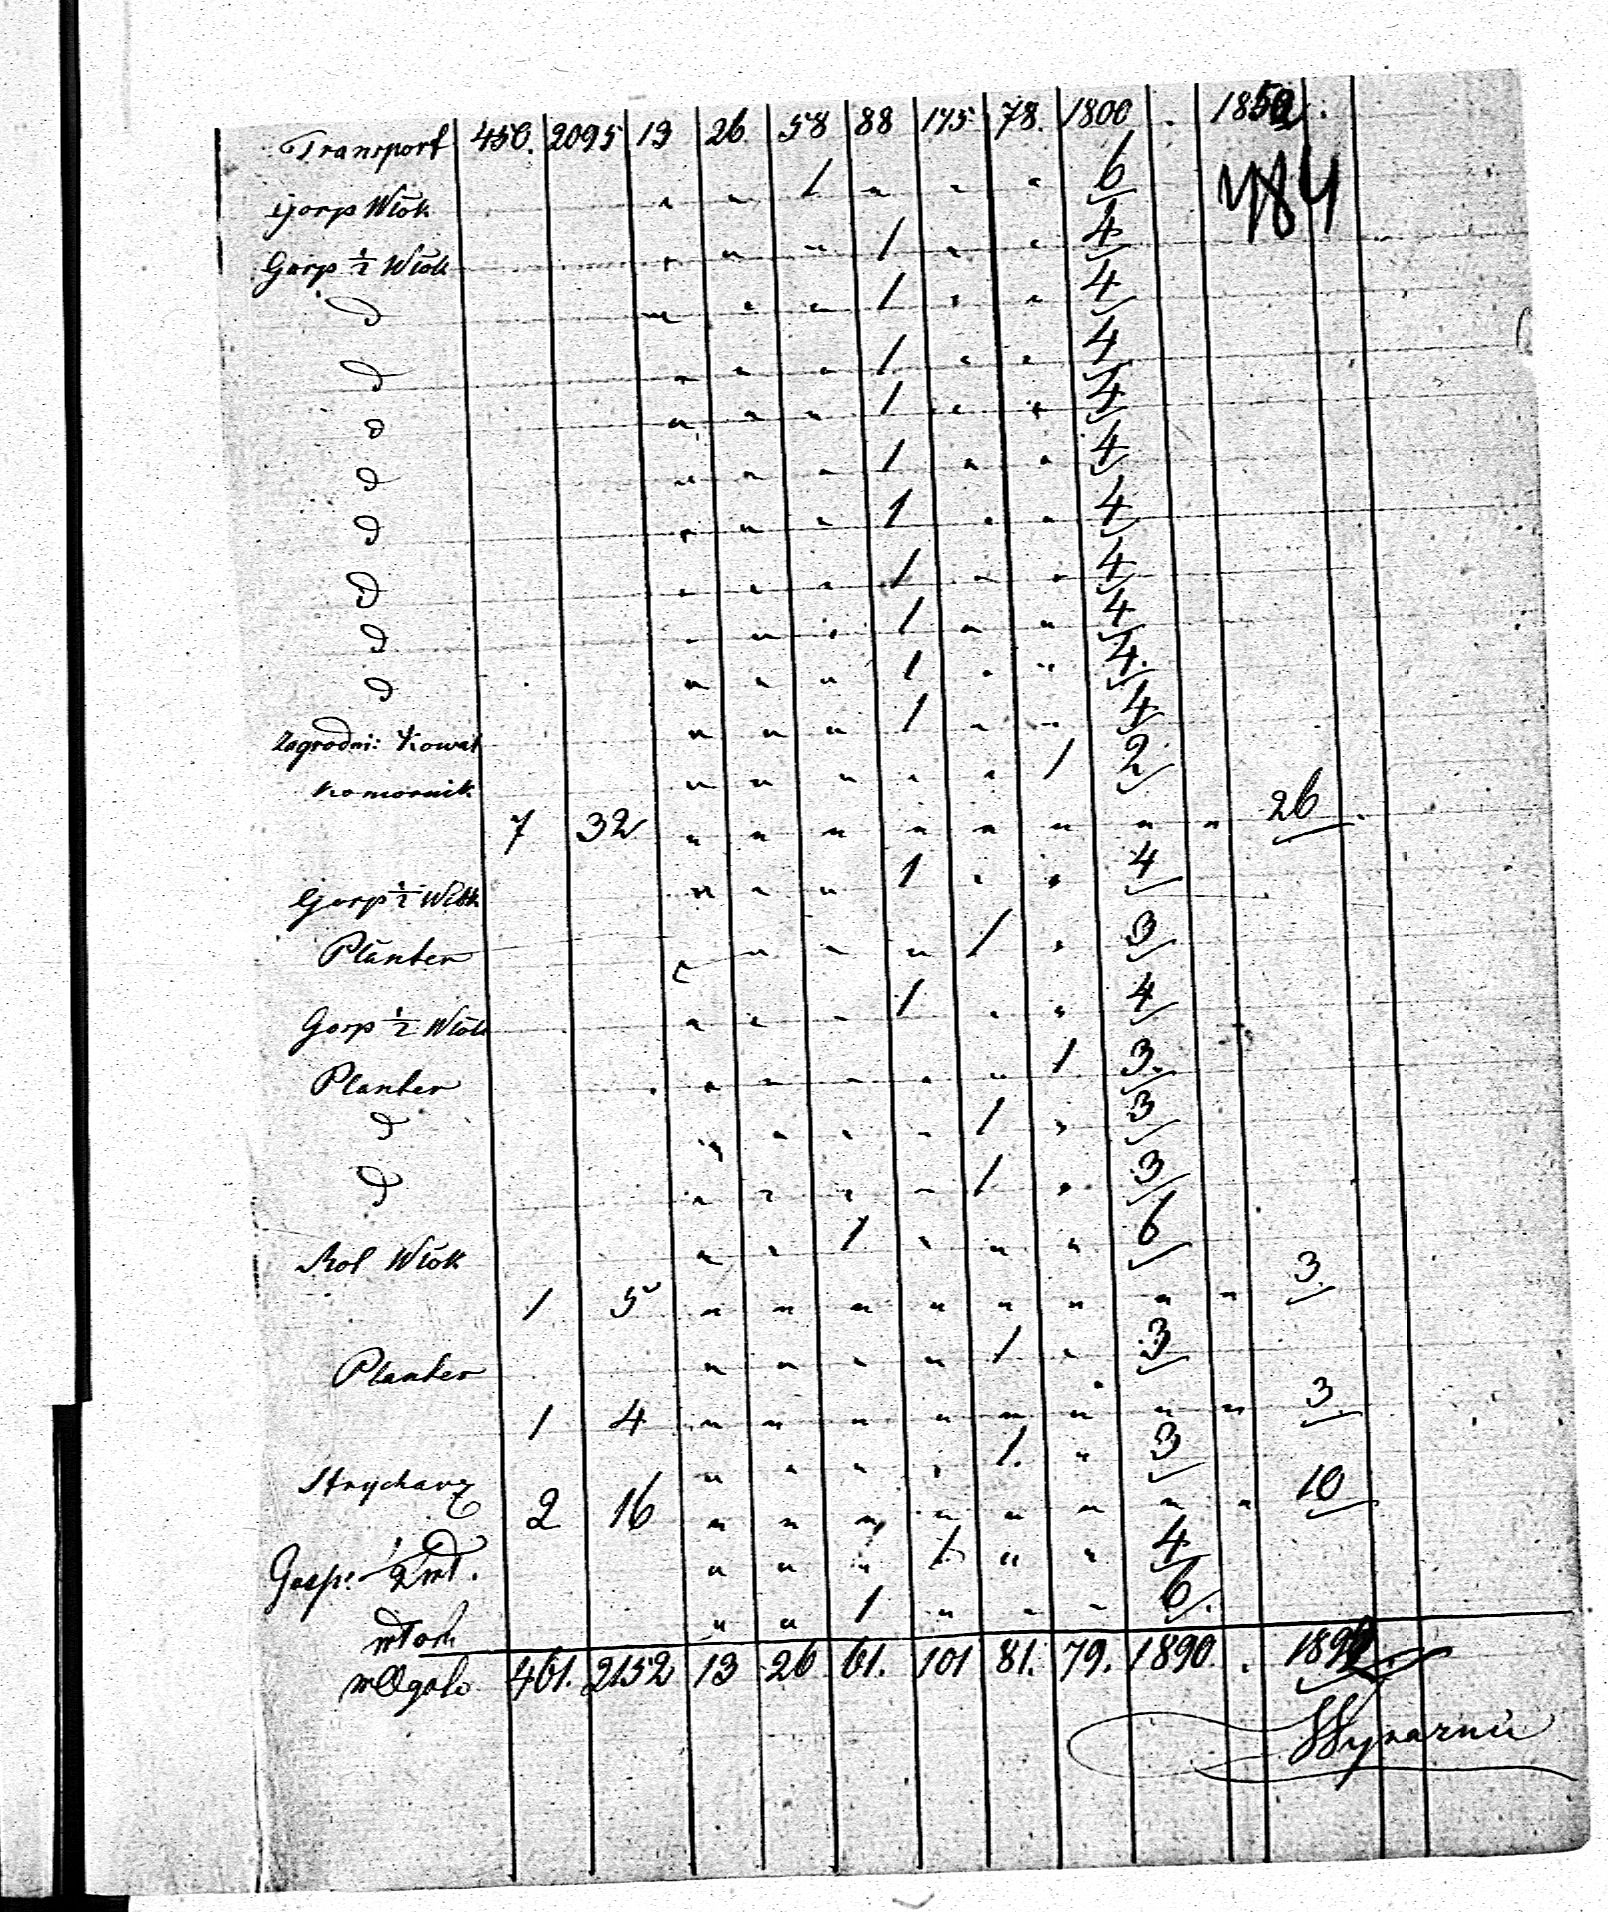 Transport 450. 2095 13 26 58 88 175 78. 1800 . 1850.
484
Gosp Włók " " 1 " " " 6
Gosp ½ Włók " " " 1 " " 4
d " " " 1 " " 4
d " " " 1 " " 4
d " " " 1 " " 4
d " " " 1 " " 4
d " " " 1 " " 4
d " " " 1 " " 4
d " " " 1 " " 4
d " " " 1 " " 4
Zagrodni: Kowal " " " 1 " " 4
Komornik " " " " " 1 2
7 32 " " " " " " " " 26
Gosp ½ Włók " " " 1 " " 4
Planter " " " " 1 " 3
Gosp ½ Włók " " " 1 " " 4
Planter " " " " " 1 3.
d " " " " 1 " 3
d " " " " 1 " 3
Rol Włók " " 1 " " " 6
1 5 " " " " " " " " 3.
Planter " " " " 1 " 3
1 4 " " " " " " " " 3.
Strycharz " " " " 1. " 3
2 16 " " " " " " " " 10
Gosp: ½ " " " 1 " " 4
włok " " 1 " " " 6.
wOgole 461. 2152 13 26 61. 101 81. 79. 1890. .